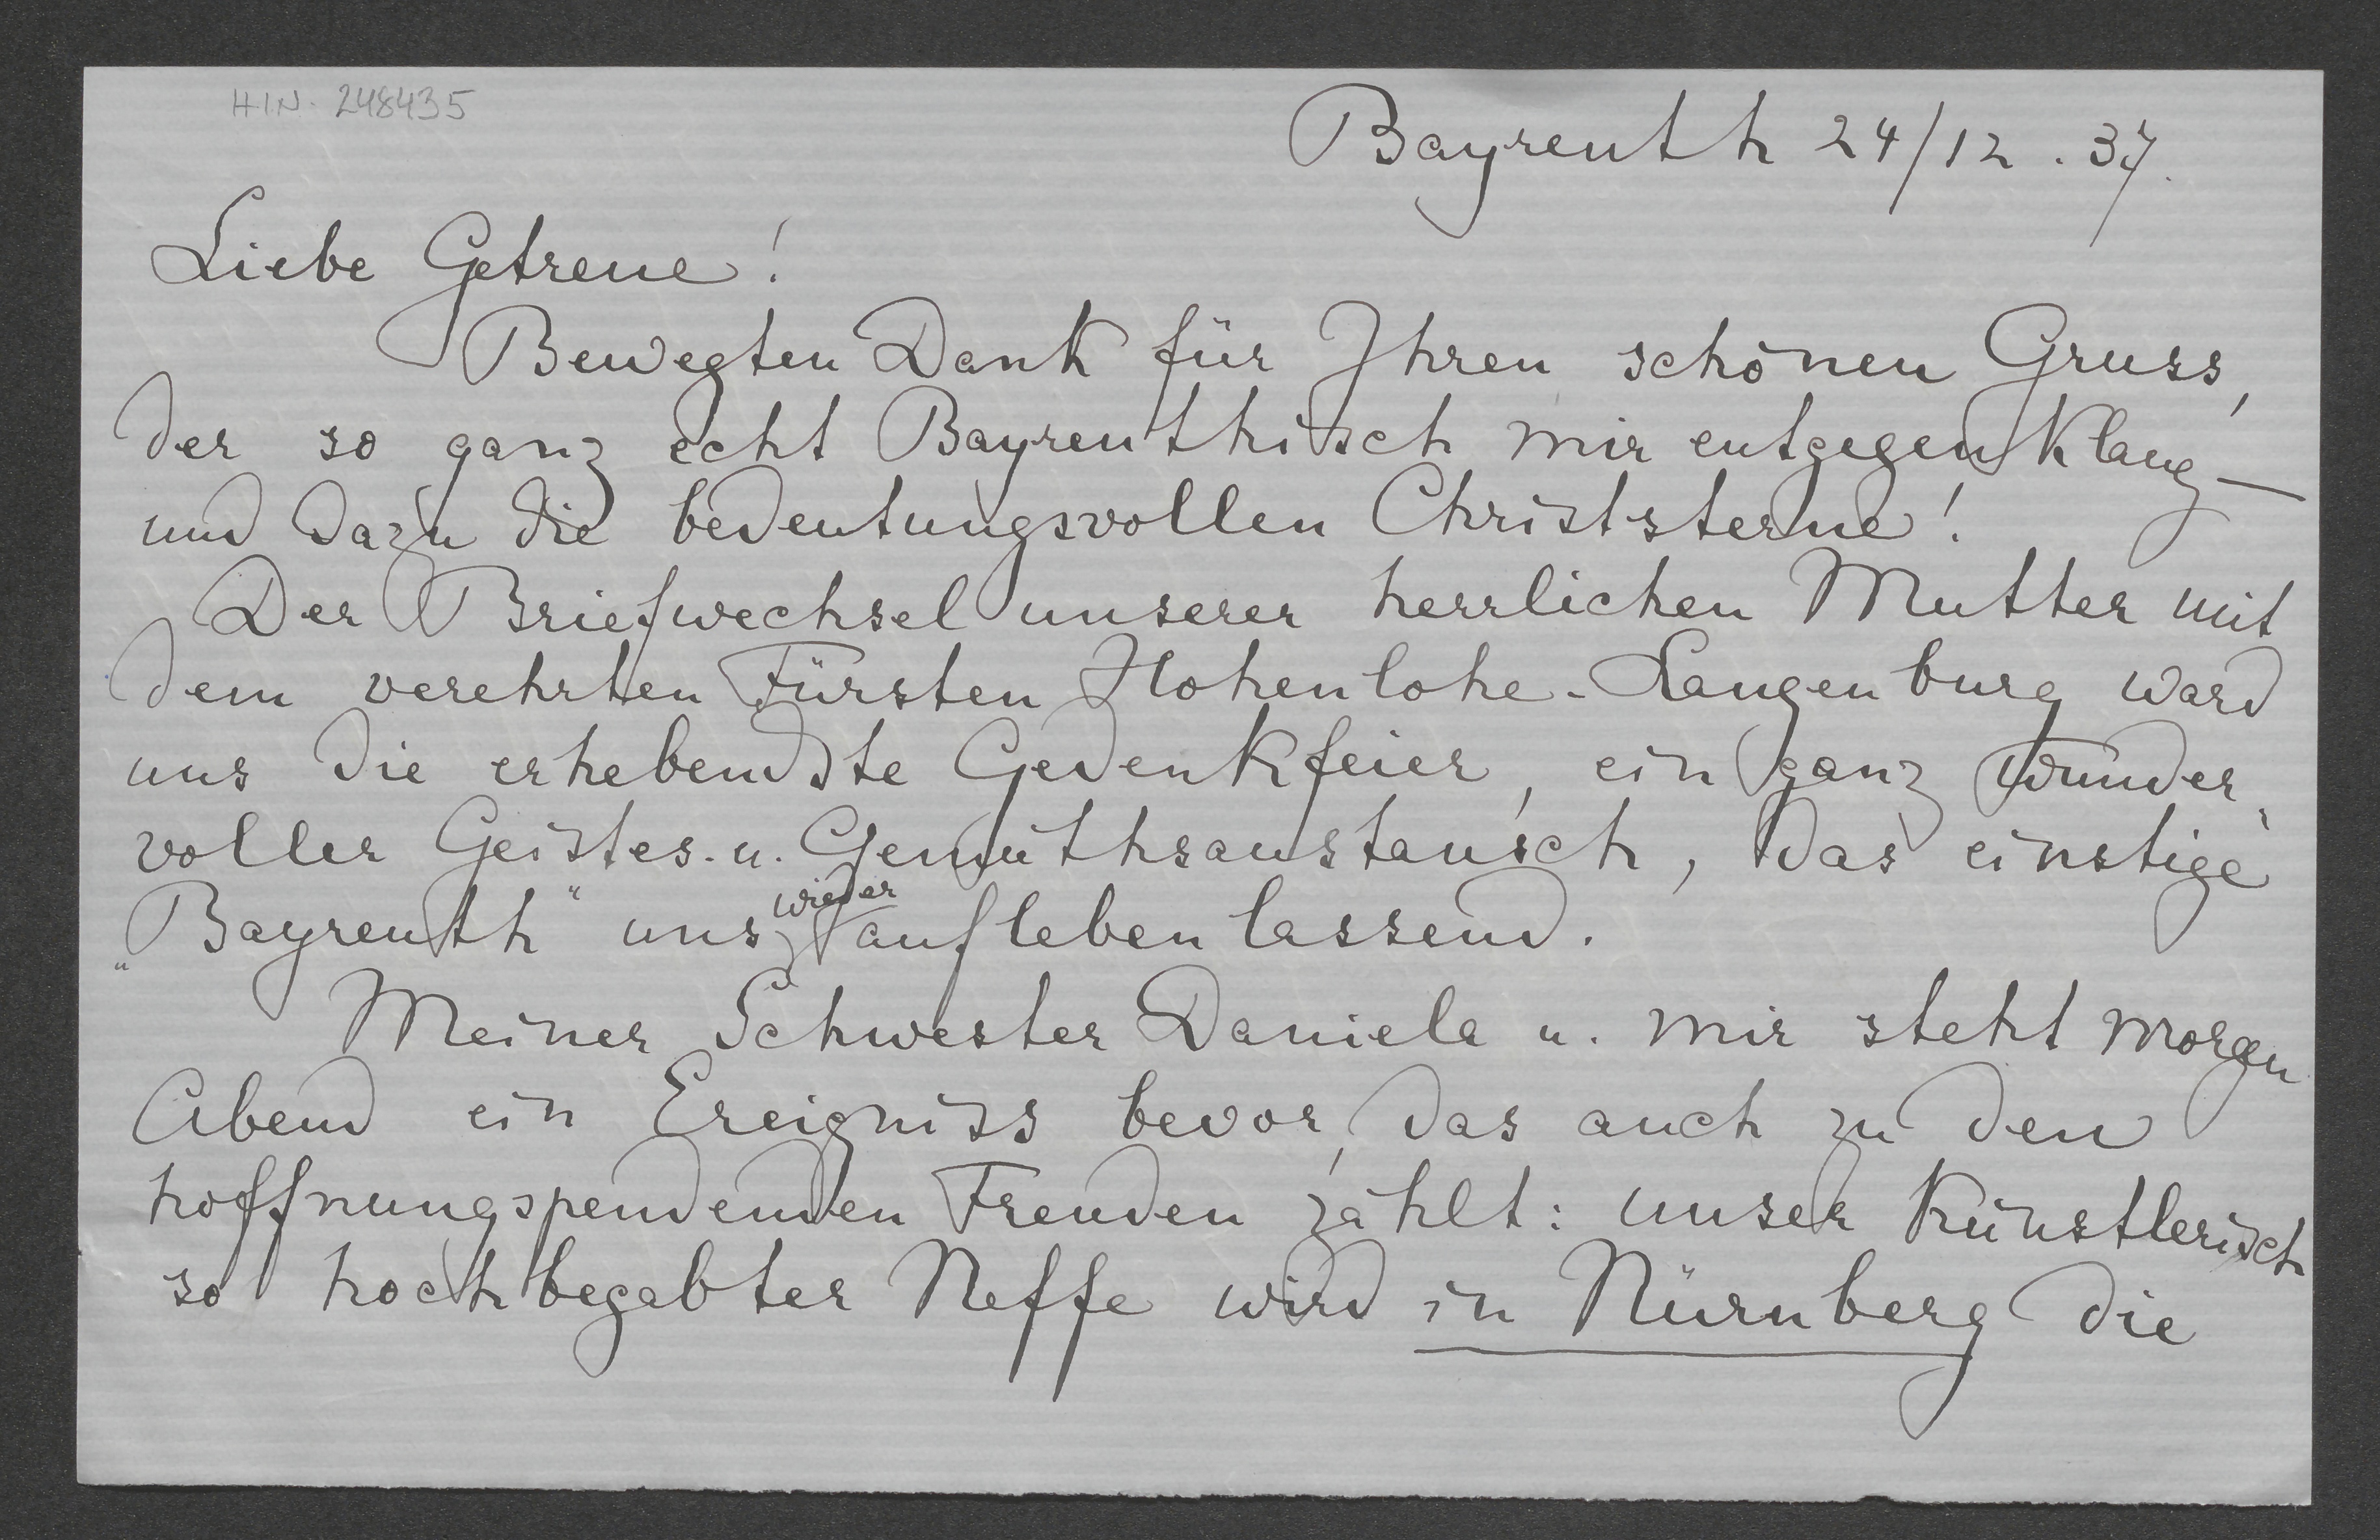 H.I.N. 248435
Bayreuth 24/12. 37.
Liebe Getreue!
Bewegten Dank für Ihren schönen Gruss,
der so ganz echt Bayreuthisch mir entgegenklang –
und dazu die bedeutungsvollen Christsterne!
Der Briefwechsel unserer herrlichen Mutter mit
dem verehrten Fürsten Hohenlohe-Langenburg ward
uns die erhebendste Gedenkfeier, ein ganz wunder-
voller Geistes- u. Gemüthsaustausch, das einstige
„Bayreuth“ uns wieder aufleben lassend.
Meiner Schwester Daniela u. mir steht morgen
Abend ein Ereigniss bevor, das auch zu den
hoffnungspendenden Freuden zählt: unser künstlerisch
so hochbegabter Neffe wird in Nürnberg die